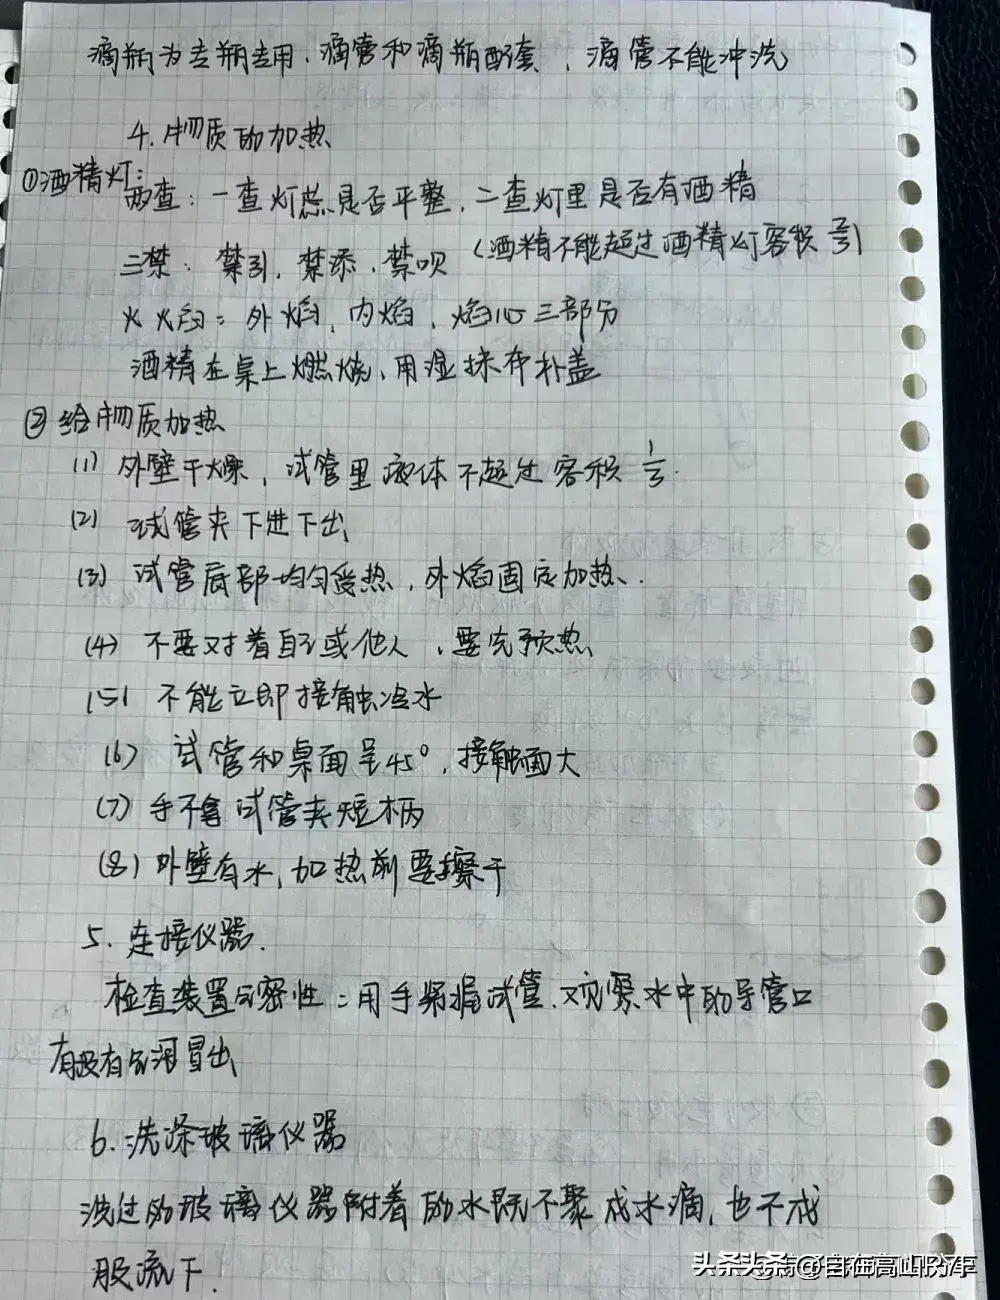 滴瓶为专瓶专用.滴管和滴瓶配套、滴管不能冲洗
4.物质的加热
①酒精灯:
两查:一查灯蕊是否平整,二查灯里是否有酒精
三禁:禁引,禁添,禁吹(酒精不能超过酒精灯容积2/3)
火焰:外焰、内焰、焰心三部分
酒精在桌上燃烧、用湿抹布扑盖
②给物质加热
(1)外壁干燥,试管里液体不超过容积1/3.
(2)试管夹下进下出
(3)试管底部均匀受热,外焰固定加热.
(4)不要对着自己或他人,要先预热
(5)不能立即接触冷水
(6)试管和桌面呈45°,接触面大
(7)手不拿试管夹短柄
(8)外壁有水,加热前要擦干
5.连接仪器.
检查装置气密性:用手紧握试管.观察水中的导管口
有没有气泡冒出
6.洗涤玻璃仪器
洗过的玻璃仪器附着的水既不聚成水滴,也不成
股流下.
头条头条@自在高山